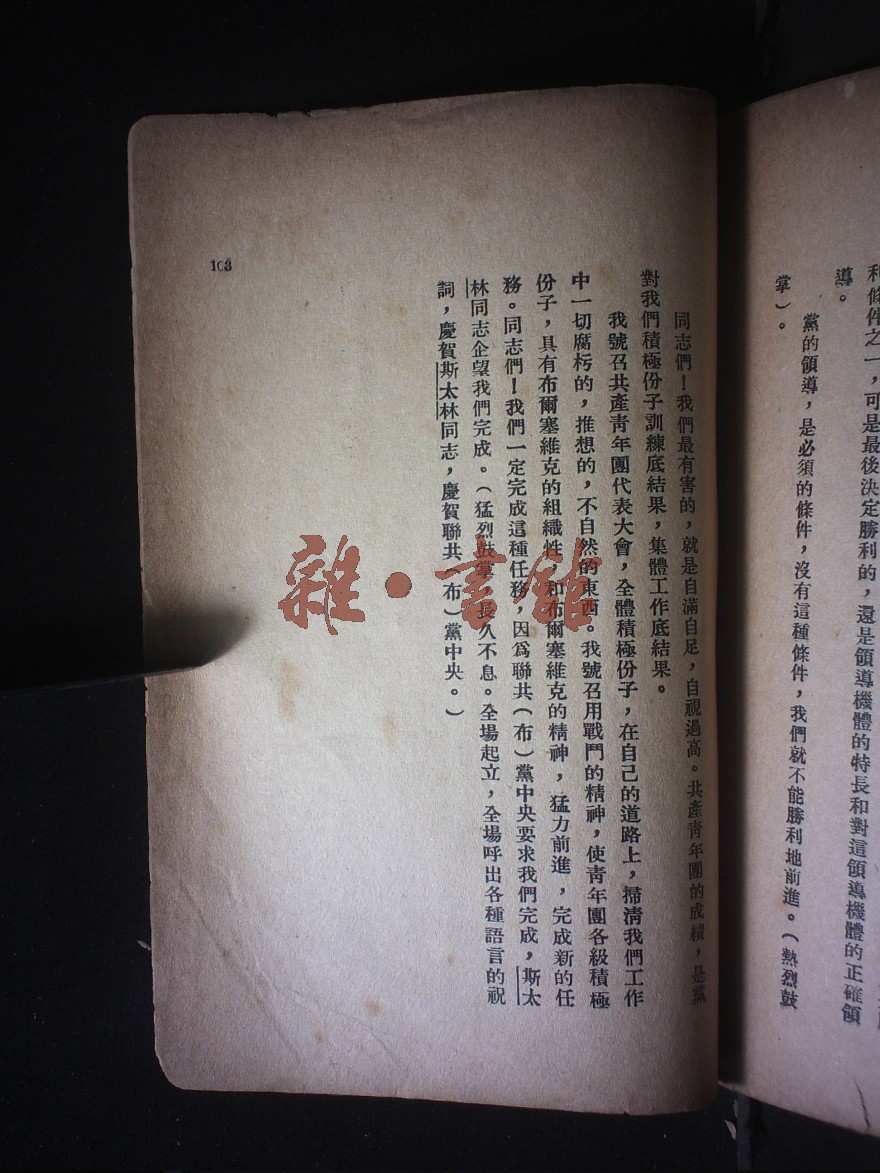 利條件之一，可是最後決定勝利的，還是領導機體的特長和對這領導機體的正確領
導。
黨的領導，是必須的條件，沒有這種條件，我們就不能勝利地前進。（熱烈鼓
掌）。
同志們！我們最有害的，就是自滿自足，自視過高。共產靑年團的成績，是黨
對我們積極份子訓練底結果，集體工作底結果。
我號召共產靑年團代表大會，全體積極份子，在自己的道路上，掃淸我們工作
中一切腐朽的，推想的，不自然的東西。我號召用戰鬥的精神，使靑年團各級積極
份子，具有布爾塞維克的組織性，和布爾塞維克的精神，猛力前進，完成新的任
務。同志們！我們一定完成這種任務，因爲聯共（布）黨中央要求我們完成，斯太
林同志企望我們完成。（猛烈鼓掌，長久不息。全場起立，全場呼出各種語言的祝
詞，慶賀斯太林同志，慶賀聯共（布）黨中央。）
108
雜·書館